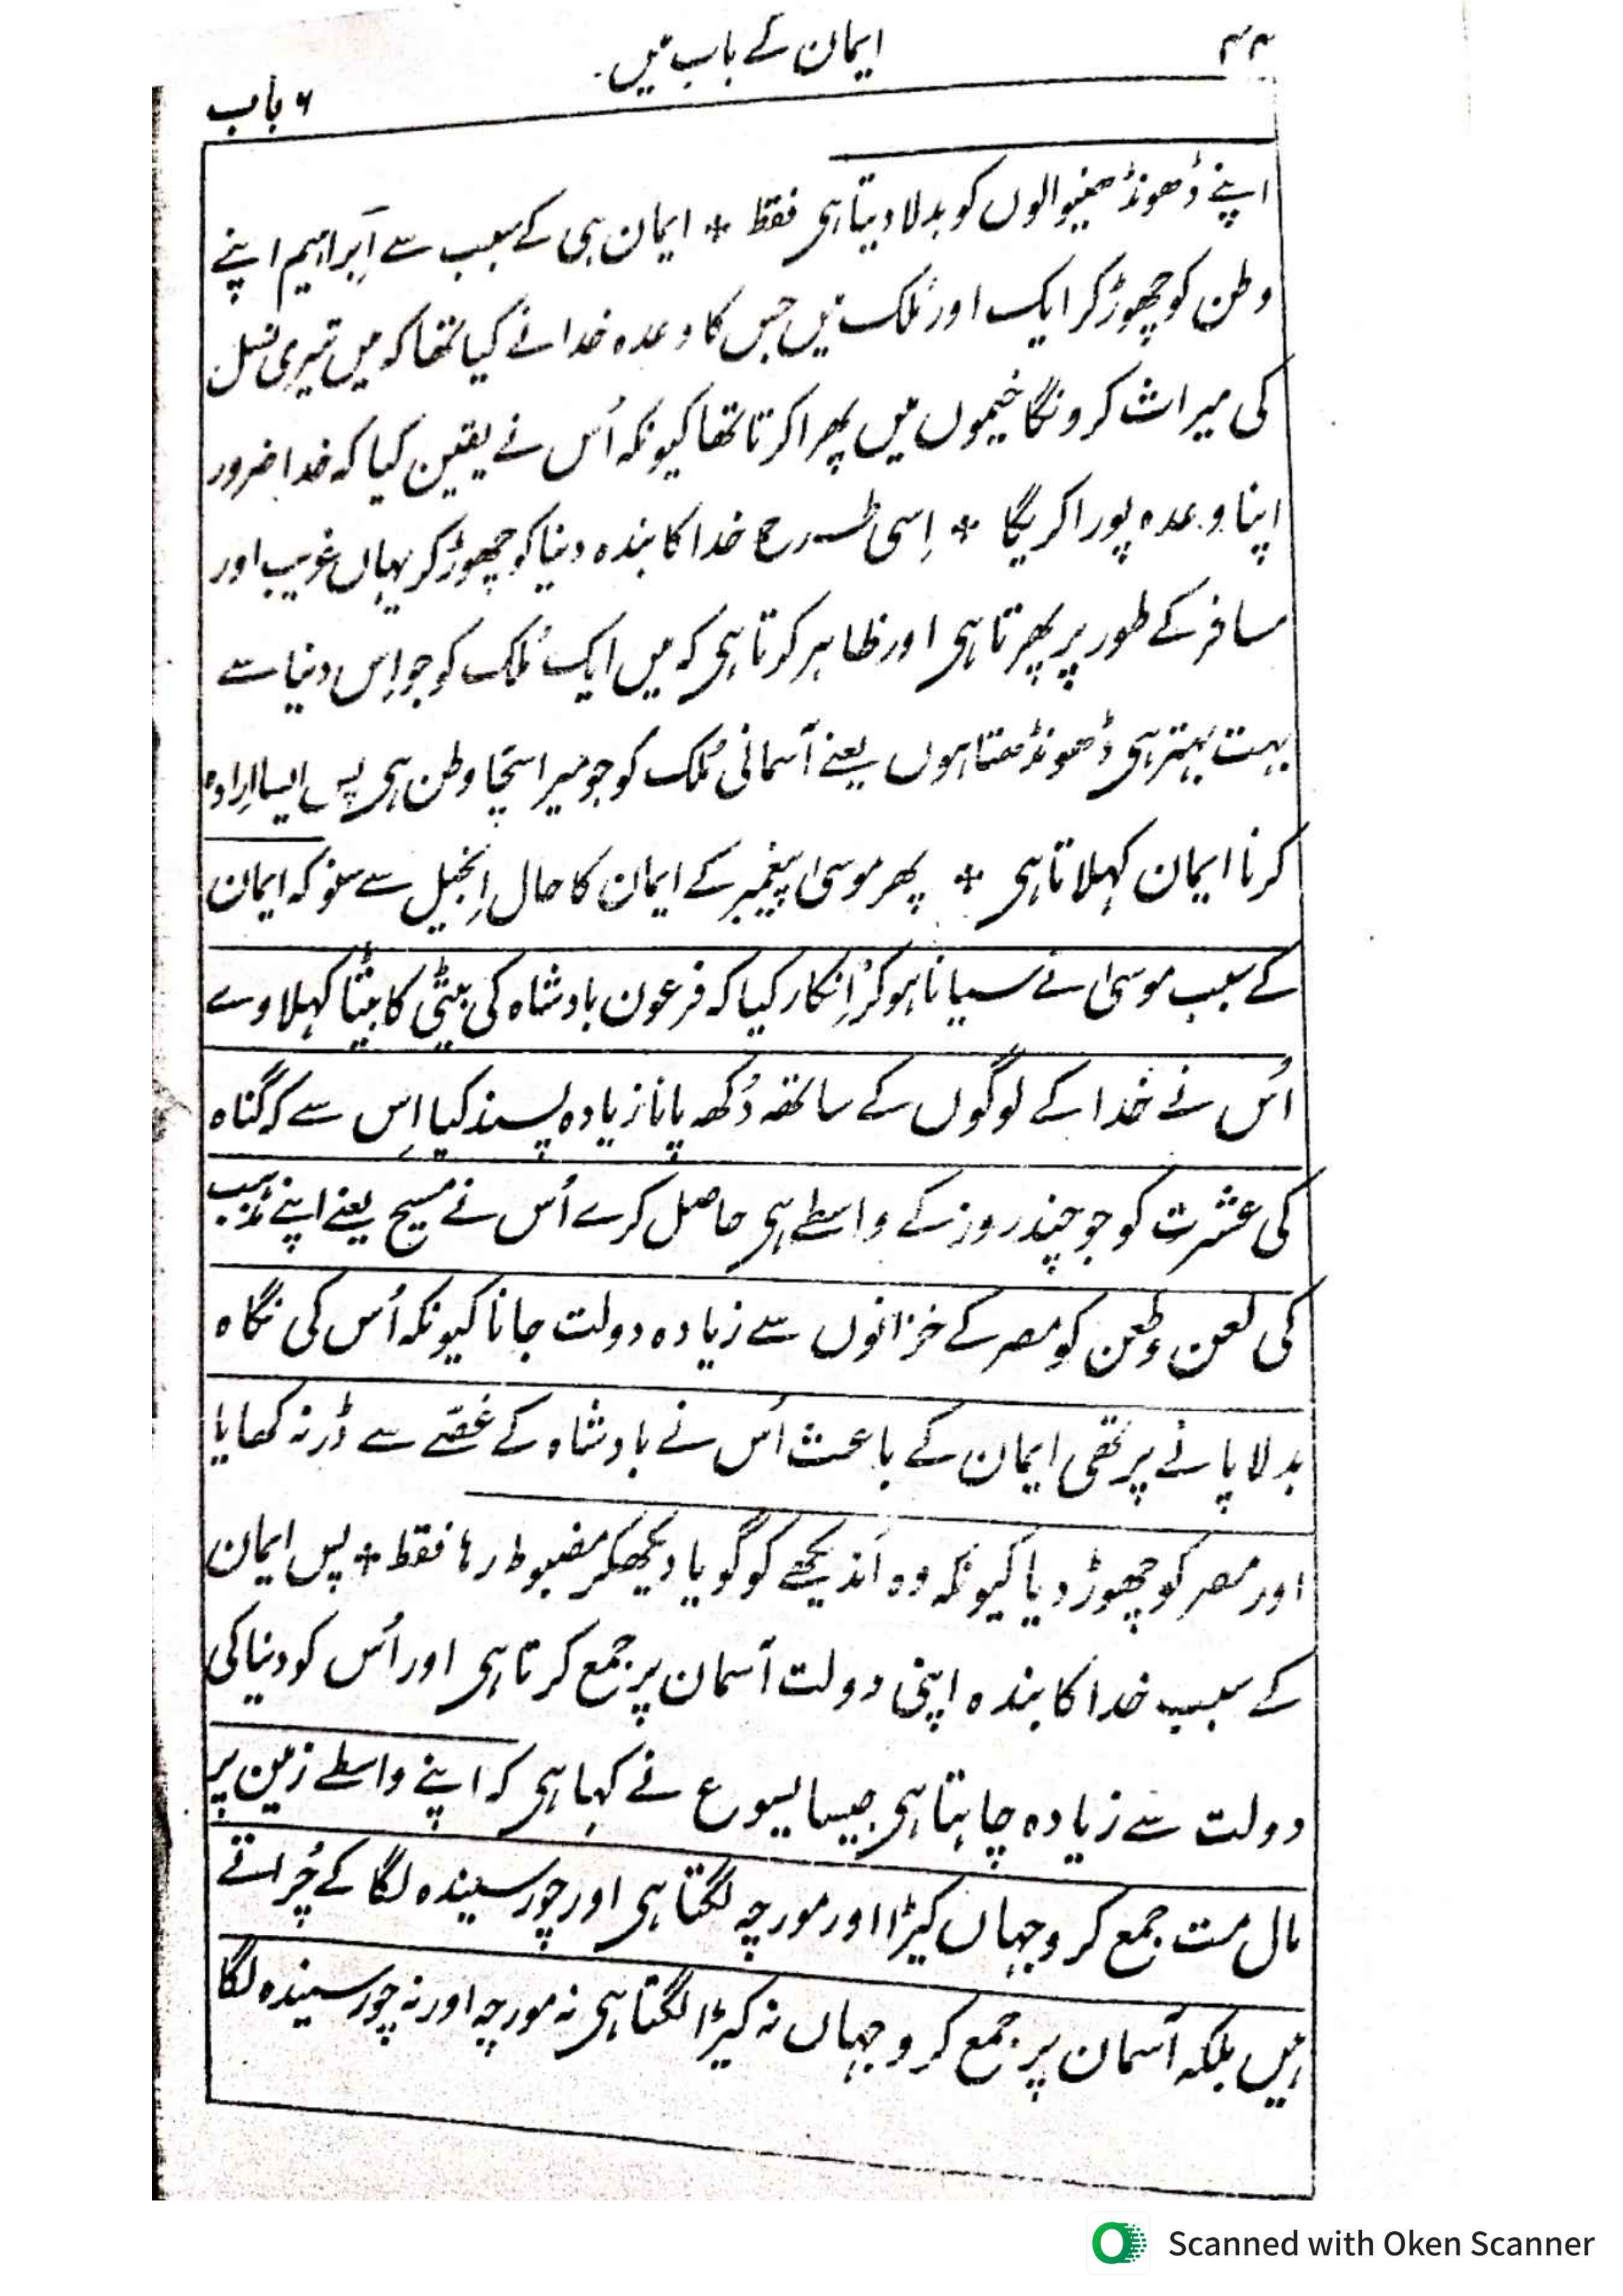 ۴۴
ایمان کے باب میں۔
۶ باب
اپنے ڈھونڈھنیوالوں کو بدلا دیتا ہی فقط * ایمان ہی کے سبب سے اَبراہیم اپنے
وطن کو چھوڑ کر ایک اور مُلک میں جس کا وعدہ خدا نے کیا تھا کہ میں تیری نسل
کی میراث کرونگا خیموں میں پھرا کرتا تھا کیونکہ اُس نے یقین کیا کہ خدا ضرور
اپنا وعدہ پورا کریگا * اِسی طرح خدا کا بندہ دنیا کو چھوڑ کر یہاں غریب اور
مسافر کے طور پر پھرتا ہی اور ظاہر کرتا ہی کہ میں ایک مُلک کو جو اِس دنیا سے
بہت بہتر ہی ڈھونڈھتا ہوں یعنے آسمانی مُلک کو جو میرا سچّا وطن ہی پس ایسا ارادہ
کرنا ایمان کہلاتا ہی * پھر موسیٰ پیغمبر کے ایمان کا حال اِنجیل سے سنو کہ ایمان
کے سبب موسیٰ نے سیانا ہو کر اِنکار کیا کہ فرعون بادشاہ کی بیٹی کا بیٹا کہلاوے
اُس نے خدا کے لوگوں کے ساتھ دُکھ پانا زیادہ پسند کیا اِس سے کہ گناہ
کی عشرت کو جو چند روز کے واسطے ہی حاصل کرے اُس نے مسیح یعنے اپنے مذہب
کی لعن وطعن کو مصر کے خزانوں سے زیادہ دولت جانا کیونکہ اُس کی نگاہ
بدلا پانے پر تھی ایمان کے باعث اُس نے بادشاہ کے غصّے سے ڈر نہ کھایا
اور مصر کو چھوڑ دیا کیونکہ وہ اَندیکھے کو گویا دیکھکر مضبوط رہا فقط * پس ایمان
کے سبب خدا کا بندہ اپنی دولت آسمان پر جمع کرتا ہی اور اُس کو دنیا کی
دولت سے زیادہ چاہتا ہی جیسا یسوع نے کہا ہی کہ اپنے واسطے زمین پر
مال مت جمع کرو جہاں کیڑا اور مورچہ لگتا ہی اور چور سیندہ لگا کے چُراتے
ہیں بلکہ آسمان پر جمع کرو جہاں نہ کیڑا لگتا ہی نہ مورچہ اور نہ چور سیندہ لگا
Scanned with Oken Scanner